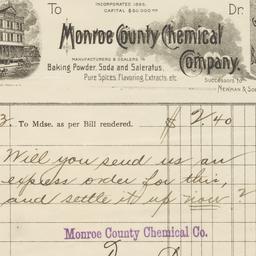 INCORPORATED 1895.
To Dr.
CAPITAL $50,000.00
Monroe County Chemical
Company.
MANUFACTURERS & DEALERS IN
Baking Powder, Soda and Saleratus,
Pure Spices, Flavoring Extracts, etc.
SUCCESSORS TO
NEWMAN & SO
3. To Mdse. as per Bill rendered. $ 2.40
Will you send us an
express order for this,
and settle it up now?
Monroe County Chemical Co.